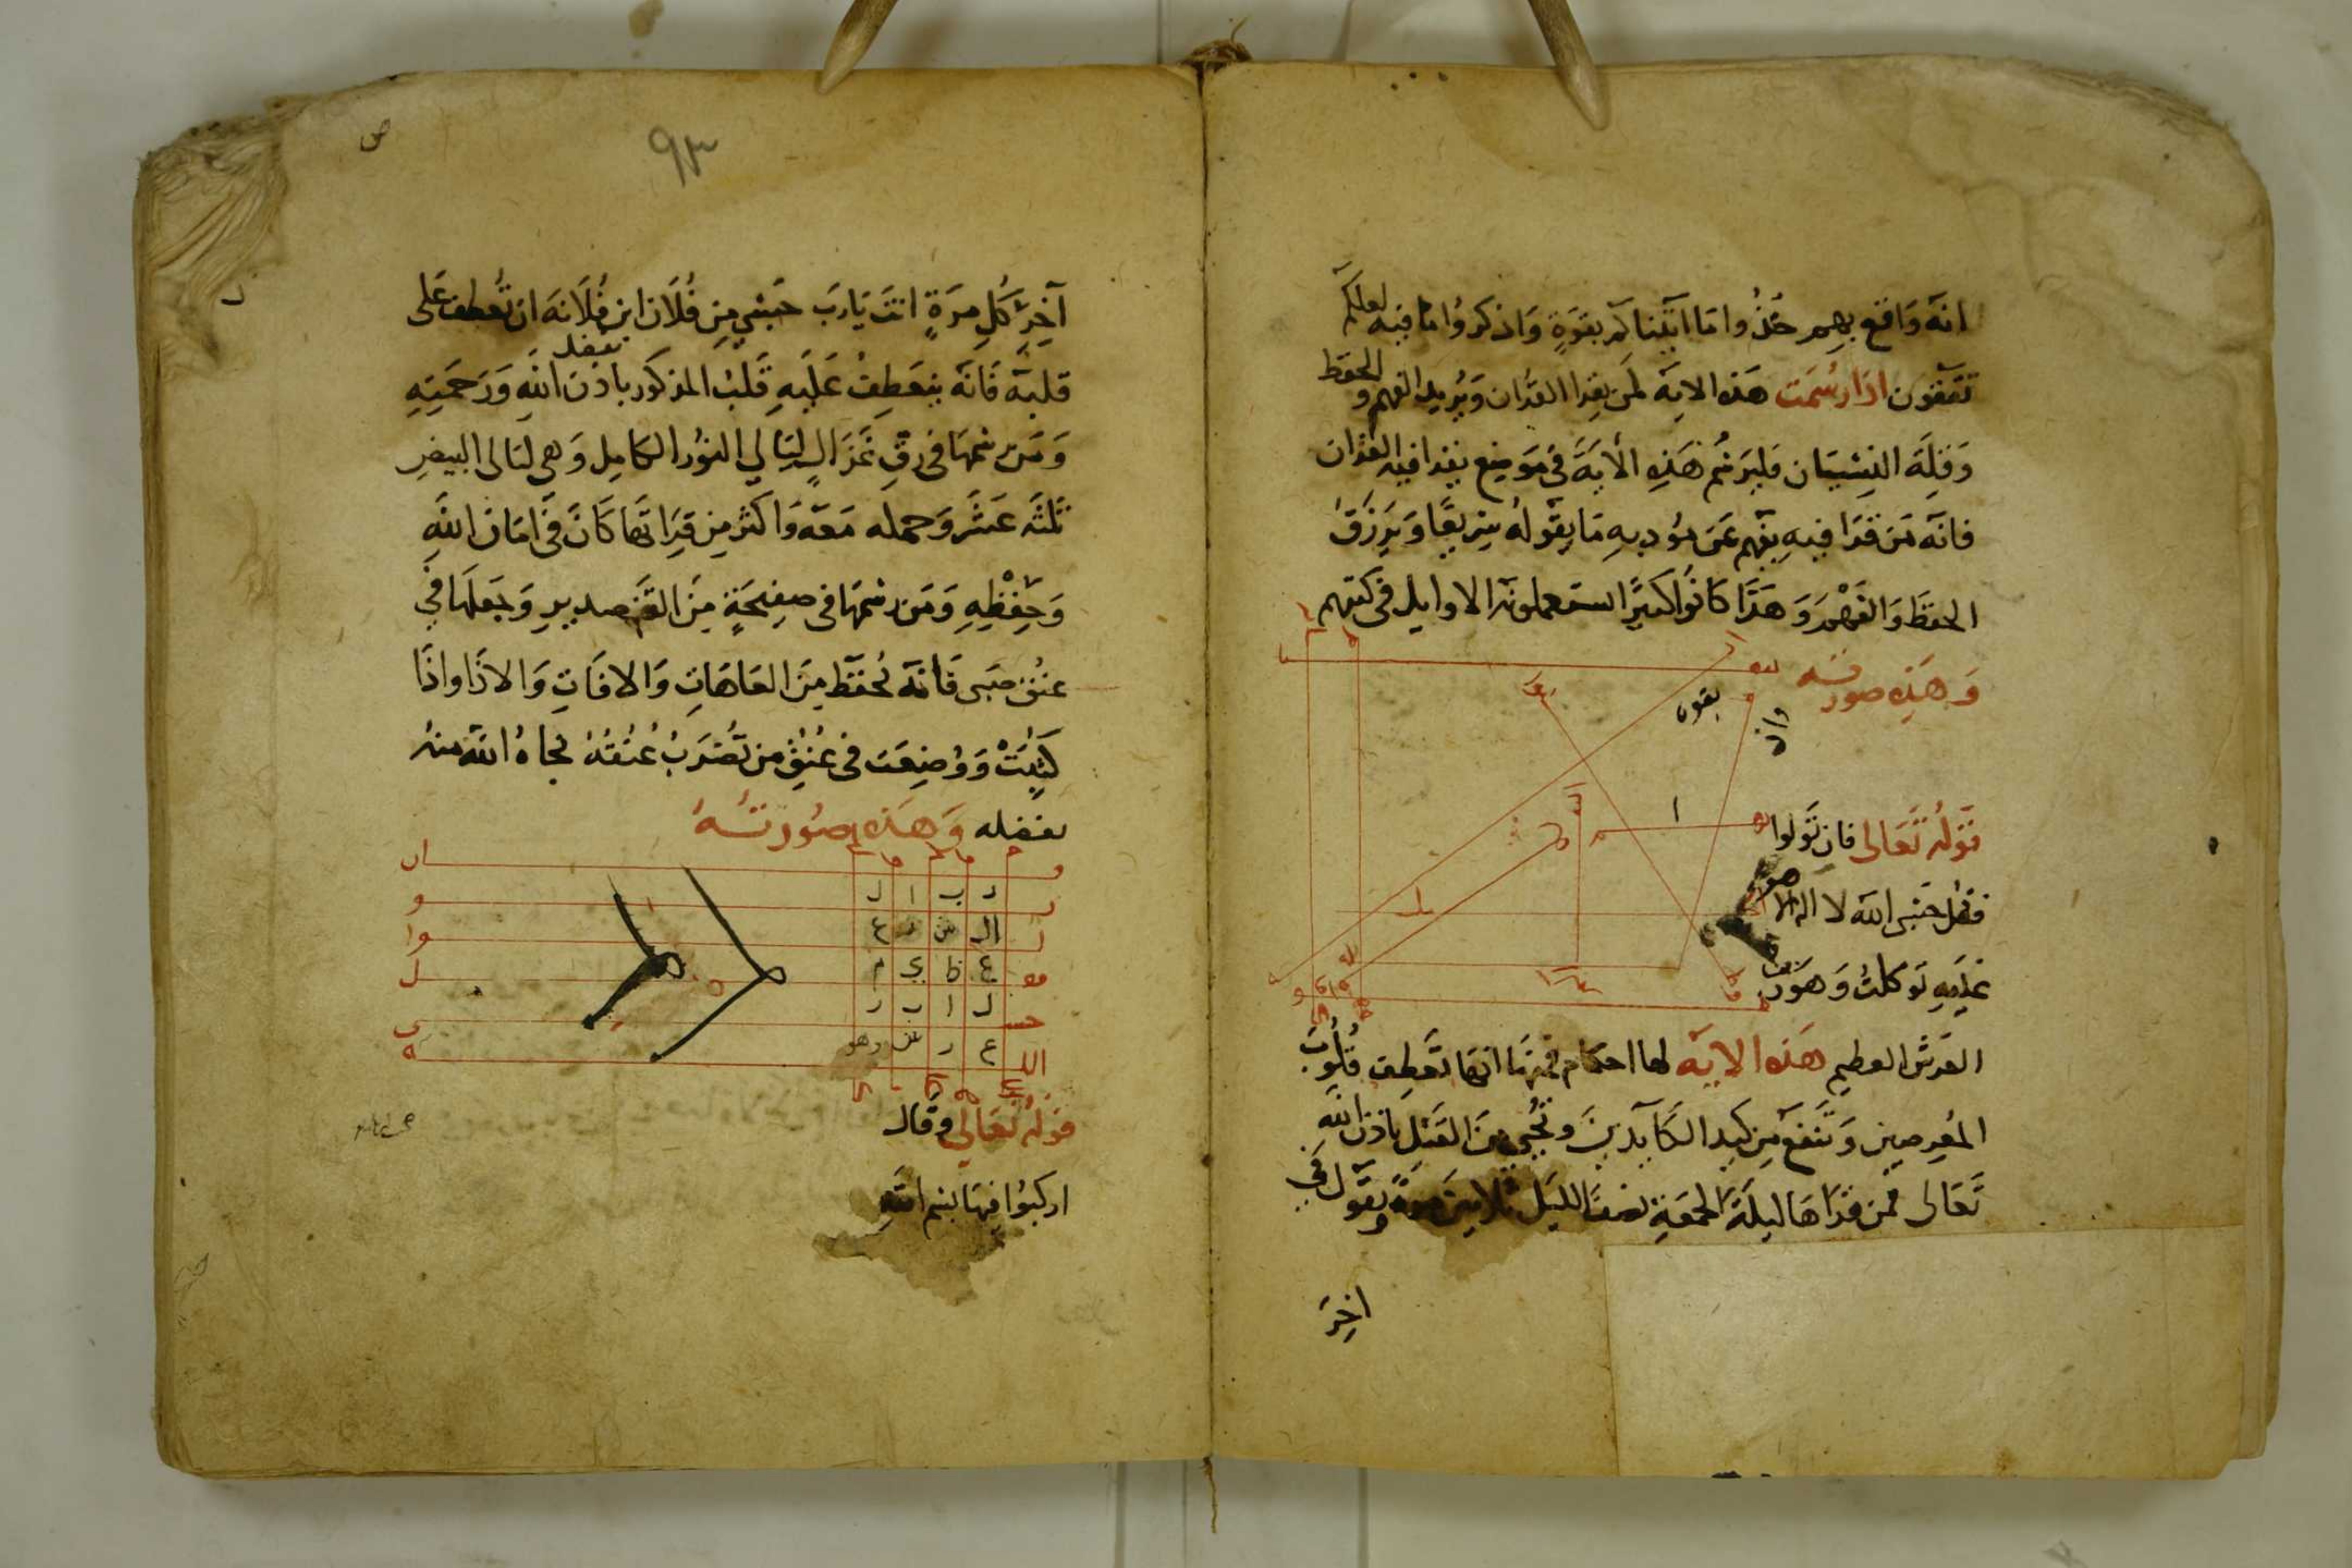 انه واقع بهم خذوا ما اتيناكم بقوة واذكروا ما فيه لعلكم
تتقون اذا رسمت هذه الاية لمن يقرا القران ويريد الفهم و الحفظ
وقلة النسيان فليرسم هذه الأية في موضع يقرا فيه القران
فانه من قرا فيه يفهم عن مؤدبه ما يقوله سريعا ويرزق
الحفظ والفهم وهذا كانوا كثيرا استعملونه الاوايل في كتبهم
وهذه صورته
قوله تعالى فان تولوا
فقل حسبي الله لا اله الا هو
عليه توكلت وهو رب
العرش العظيم هذه الاية لها احكام فمنها انها تعطف قلوب
المعرضين وتنفع من كيد الكآيدين وتنجي من القتل باذن الله
تعالى فمن قراها ليلة الجمعة نصف الليل ثلاثين مرة ويقول في
اخر
٩٣
آخر كل مرة انت يارب حسبي من فلان ابن فلانة ان تعطف على
قلبه فانه ينعطف عليه قلب المذكور باذن الله ورحمته
ومن رسمها في رق غزال ليالي النور الكامل وهي ليالى البيض
ثلثه عشر وحمله معه واكثر من قراتها كان في امان الله
وحفظه ومن رسمها فى صفيحة من القصدير وجعلها في
عنق صبى فانه يحفظ من العاهات والافات والاذا واذا
كتبت ووضعت فى عنق من تضرب عنقه نجاه الله منه
بفضله وهذه صورته
د ب ا ل
ال ش ر ع
ع ظ ي م
ل ا ب ر
ع ر ش وهو
قوله تعالى وقال
اركبوا فيها بسم الله